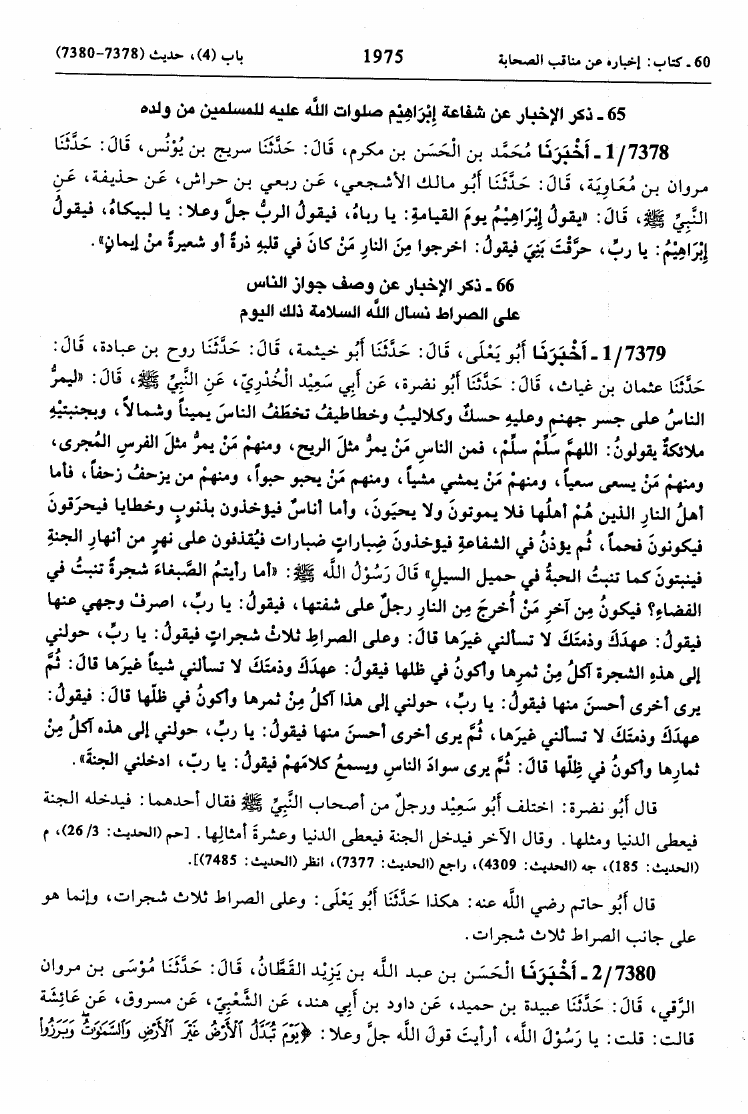 60 ـ كتاب: إخباره عن مناقب الصحابة 1975 باب (4)، حديث (7378-7380)
65 ـ ذكر الإخبار عن شفاعة إِبْرَاهِيْم صلوات اللَّه عليه للمسلمين من ولده
1/7378 ـ أَخْبَرَنَا مُحَمَّد بن الْحَسَن بن مكرم، قَالَ: حَدَّثَنَا سريج بن يُوْنُس، قَالَ: حَدَّثَنَا
مروان بن مُعَاوِيَة، قَالَ: حَدَّثَنَا أَبُو مالك الأشجعي، عَن ربعي بن حراش، عَن حذيفة، عَنِ
النَّبِيِّ ﷺ، قَالَ: «يقولُ إِبْرَاهِيْمُ يومَ القيامةِ: يا رباهُ، فيقولُ الربُّ جلَّ وعلا: يا لبيكاهُ، فيقولُ
إِبْرَاهِيْمُ: يا ربِّ، حرَّقْتَ بَنِيَّ فيقولُ: اخرجوا مِنَ النارِ مَنْ كانَ في قلبهِ ذرةٌ أو شعيرةٌ منْ إيمانٍ».
66 ـ ذكر الإخبار عن وصف جواز الناس
على الصراط نسأل اللَّه السلامة ذلك اليوم
1/7379 ـ أَخْبَرَنَا أَبُو يَعْلَى، قَالَ: حَدَّثَنَا أَبُو خيثمة، قَالَ: حَدَّثَنَا روح بن عبادة، قَالَ:
حَدَّثَنَا عثمان بن غياث، قَالَ: حَدَّثَنَا أَبُو نضرة، عَن أَبي سَعِيْد الْخُدْرِيّ، عَنِ النَّبِيِّ ﷺ، قَالَ: «ليمرُّ
الناسُ على جسر جهنمِ وعليهِ حسكٌ وكلاليبُ وخطاطيفُ تخطَفُ الناسَ يميناً وشمالاً، وبجنبتيْهِ
ملائكةٌ يقولونُ: اللهمَّ سَلِّمْ سلِّمْ، فمن الناسِ مَنْ يمرُّ مثلَ الريحِ، ومنهمْ مَنْ يمرُّ مثلَ الفرسِ المُجرى،
ومنهمْ مَنْ يسعى سعياً، ومنهمْ مَنْ يمشي مشياً، ومنهم مَنْ يحبو حبواً، ومنهمْ من يزحفُ زحفاً، فأما
أهلُ النارِ الذين هُمْ أهلُها فلا يموتونَ ولا يحيَونَ، وأما أناسٌ فيؤخذون بذنوبٍ وخطايا فيحرَقونَ
فيكونونَ فحماً، ثم يؤذنُ في الشفاعةِ فيؤخذونَ ضِباراتٍ ضبارات فيُقذفون على نهرٍ من أنهارِ الجنةِ
فينبتونَ كما تنبتُ الحبةُ في حميل السيلِ» قَالَ رَسُوْلُ اللَّه ﷺ: «أما رأيتمُ الصَّبغاءَ شجرةً تنبتُ في
الفضاءِ؟ فيكونُ مِن آخرِ مَنْ أُخرجَ مِن النارِ رجلٌ على شفتها، فيقولُ: يا ربِّ، اصرفْ وجهي عنها
فيقولُ: عهدَكَ وذمتَكَ لا تسألني غيرَها قالَ: وعلى الصراطِ ثلاثُ شجراتٍ فيقولُ: يا ربِّ، حولني
إلى هذهِ الشجرة آكلُ مِنْ ثمرِها وأكونُ في ظلها فيقولُ: عهدَكَ وذمتَكَ لا تسألني شيئاً غيرَها قالَ: ثُمَّ
يرى أخرى أحسنَ منها فيقولُ: يا ربِّ، حولني إلى هذا آكلُ مِنْ ثمرها وأكونُ في ظلّها قالَ: فيقولُ:
عهدَكَ وذمتَكَ لا تسألني غيرَها، ثُمَّ يرى أخرى أحسنَ منها فيقولُ: يا ربِّ، حولني إلى هذه آكلُ مِنْ
ثمارِها وأكونُ في ظِلِّها قالَ: ثُمَّ يرى سوادَ الناسِ ويسمعُ كلامَهمْ فيقولُ: يا ربِّ، ادخلني الجنةَ».
قال أَبُو نضرة: اختلف أَبُو سَعِيْد ورجلٌ من أصحاب النَّبِيِّ ﷺ فقال أحدهما: فيدخله الجنة
فيعطى الدنيا ومثلها. وقال الآخر فيدخل الجنة فيعطى الدنيا وعشرةَ أمثالِها. [حم (الحديث: 26/3)، م
(الحديث: 185)، جه (الحديث: 4309)، راجع (الحديث: 7377)، انظر (الحديث: 7485)].
قال أَبُو حاتم رضي اللَّه عنه: هكذا حَدَّثَنَا أَبُو يَعْلَى: وعلى الصراط ثلاث شجرات، وإنما هو
على جانب الصراط ثلاث شجرات.
2/7380 ـ أَخْبَرَنَا الْحَسَن بن عبد اللَّه بن يَزِيْد القَطَّانُ، قَالَ: حَدَّثَنَا مُوْسَى بن مروان
الرَّقي، قَالَ: حَدَّثَنَا عبيدة بن حميد، عَن داود بن أَبي هند، عَن الشَّعْبِيّ، عَن مسروق، عَن عَائِشَة
قالت: قلت: يا رَسُوْلَ اللَّه، أرأيتَ قولَ اللَّه جلَّ وعلا: ﴿يَوْمَ تُبَدَّلُ ٱلْأَرْضُ غَيْرَ ٱلْأَرْضِ وَٱلسَّمَٰوَٰتُ وَبَرَزُوا۟